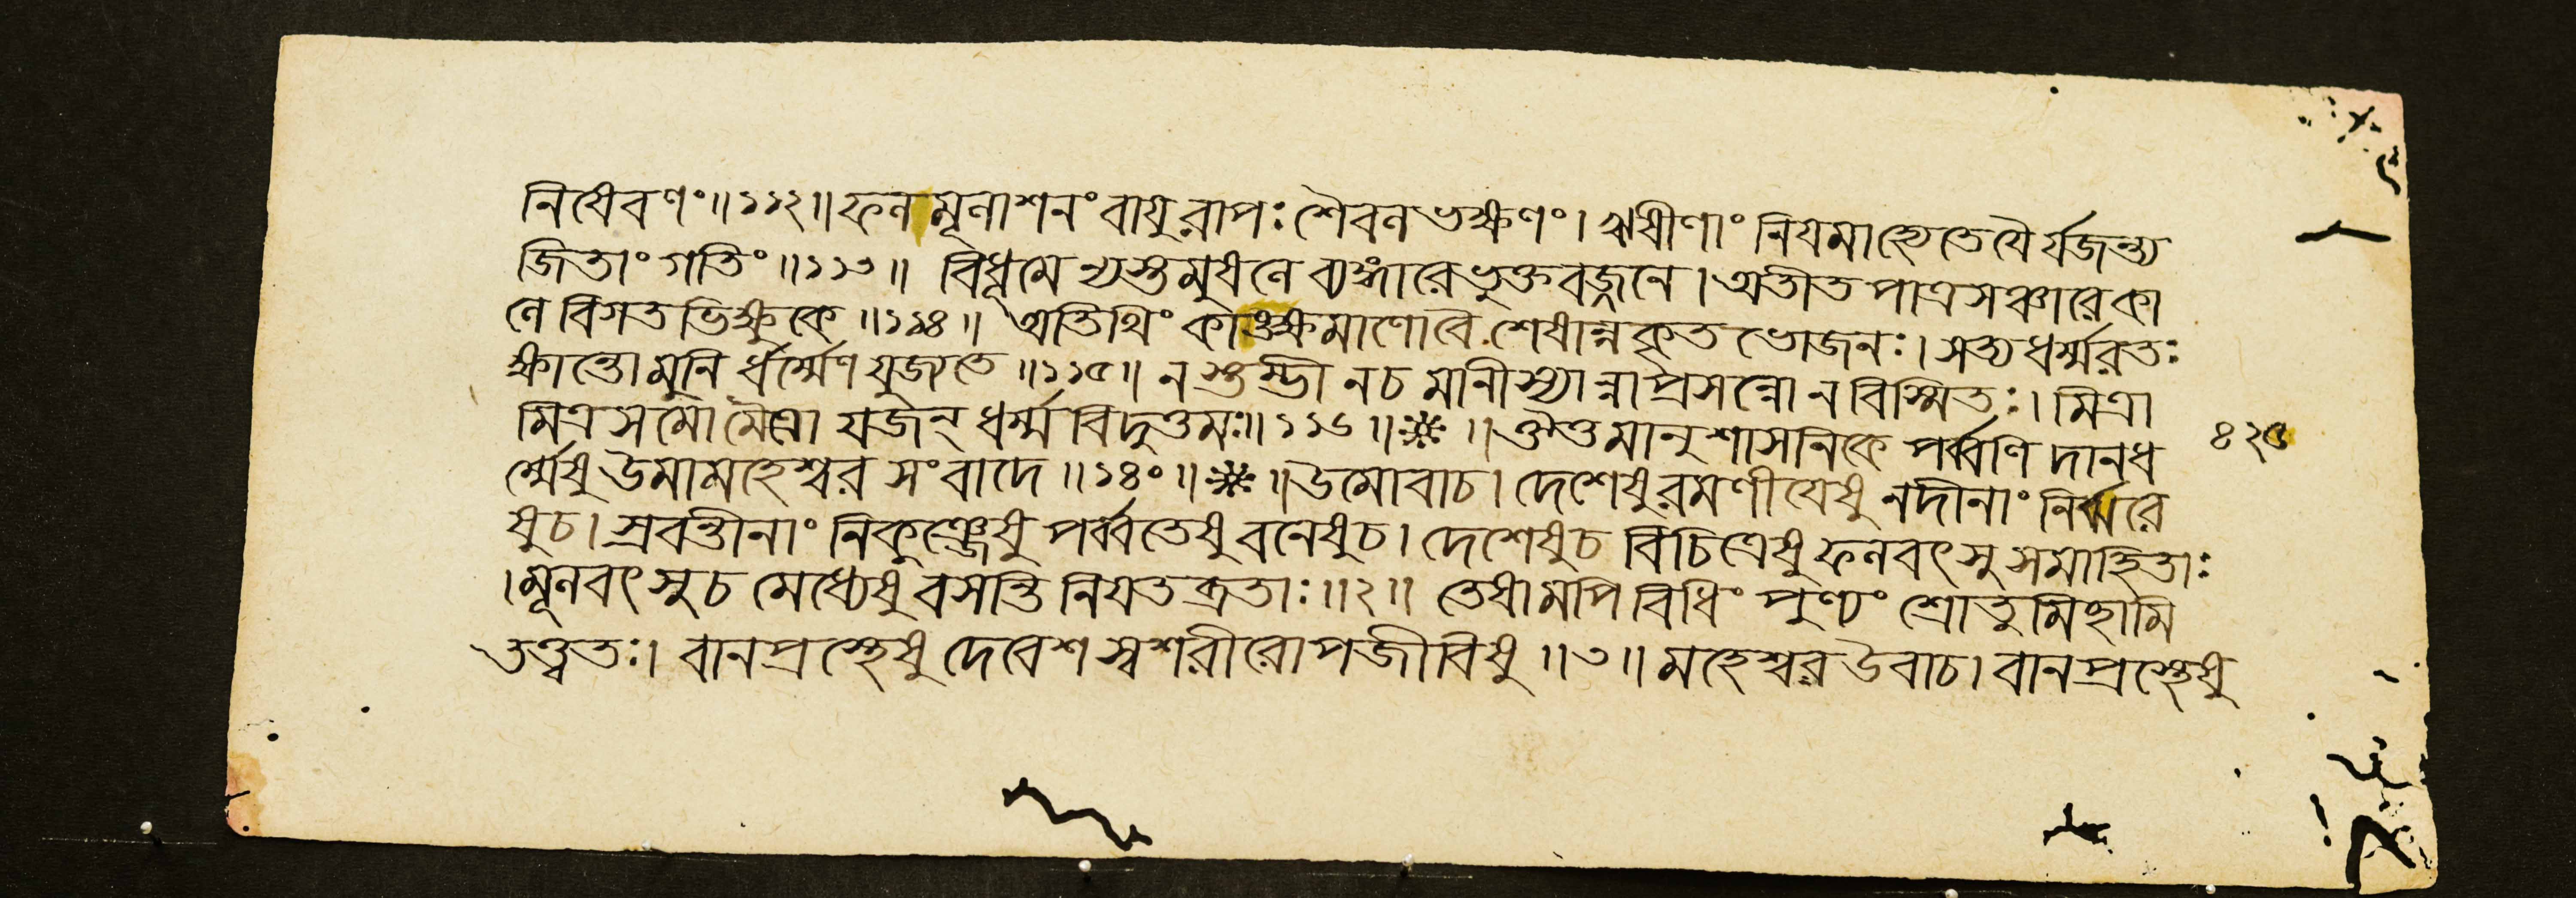 নিষেবণং॥১১২॥ফলমূলাশনং বায়ুরাপঃ শৈবলভক্ষণং। ঋষীণাং নিয়মাহ্যেতে যৈর্যজন্ত্য
জিতাং গতিং॥১১৩॥ বিধূমে ন্যস্তমুষলে ব্যঙ্গারে ভুক্তবজ্জনে। অতীত পাত্রসঞ্চারে কা
লে বিগতভিক্ষুকে॥১১৪॥ অতিথিং কাঙ্ক্ষমাণোবৈ শেষান্নকৃতভোজনঃ। সত্যধর্ম্মরতঃ
ক্ষান্তো মুনির্ধর্ম্মেণ যুজ্যতে॥১১৫॥ ন স্তম্ভী নচ মানীস্যান্নাপ্রসন্নো ন বিস্মিতঃ। মিত্রা
মিত্রসমোমৈত্রো যজন্ ধর্ম্মবিদুত্তমঃ॥১১৬॥ ॥ঔত্তমানুশাসনিকে পর্ব্বণি দানধ
র্ম্মেষু উমামহেশ্বর সংবাদে॥১৪০॥ ॥উমোবাচ। দেশেষু রমণীয়েষু নদীনাং নির্ঝরে
ষুচ। স্রবন্তীনাং নিকুঞ্জেষু পর্ব্বতেষু বনেষুচ। দেশেষুচ বিচিত্রেষু ফলবৎসু সমাহিতাঃ
।মূলবৎসুচ মেধ্যেষু বসন্তি নিয়তব্রতাঃ॥২॥ তেষামপি বিধিং পুণ্যং শ্রোতুমিচ্ছামি
তত্ত্বতঃ। বানপ্রস্থেষু দেবেশ স্বশরীরোপজীবিষু॥৩॥ মহেশ্বর উবাচ। বানপ্রস্থেষু
৪২৫